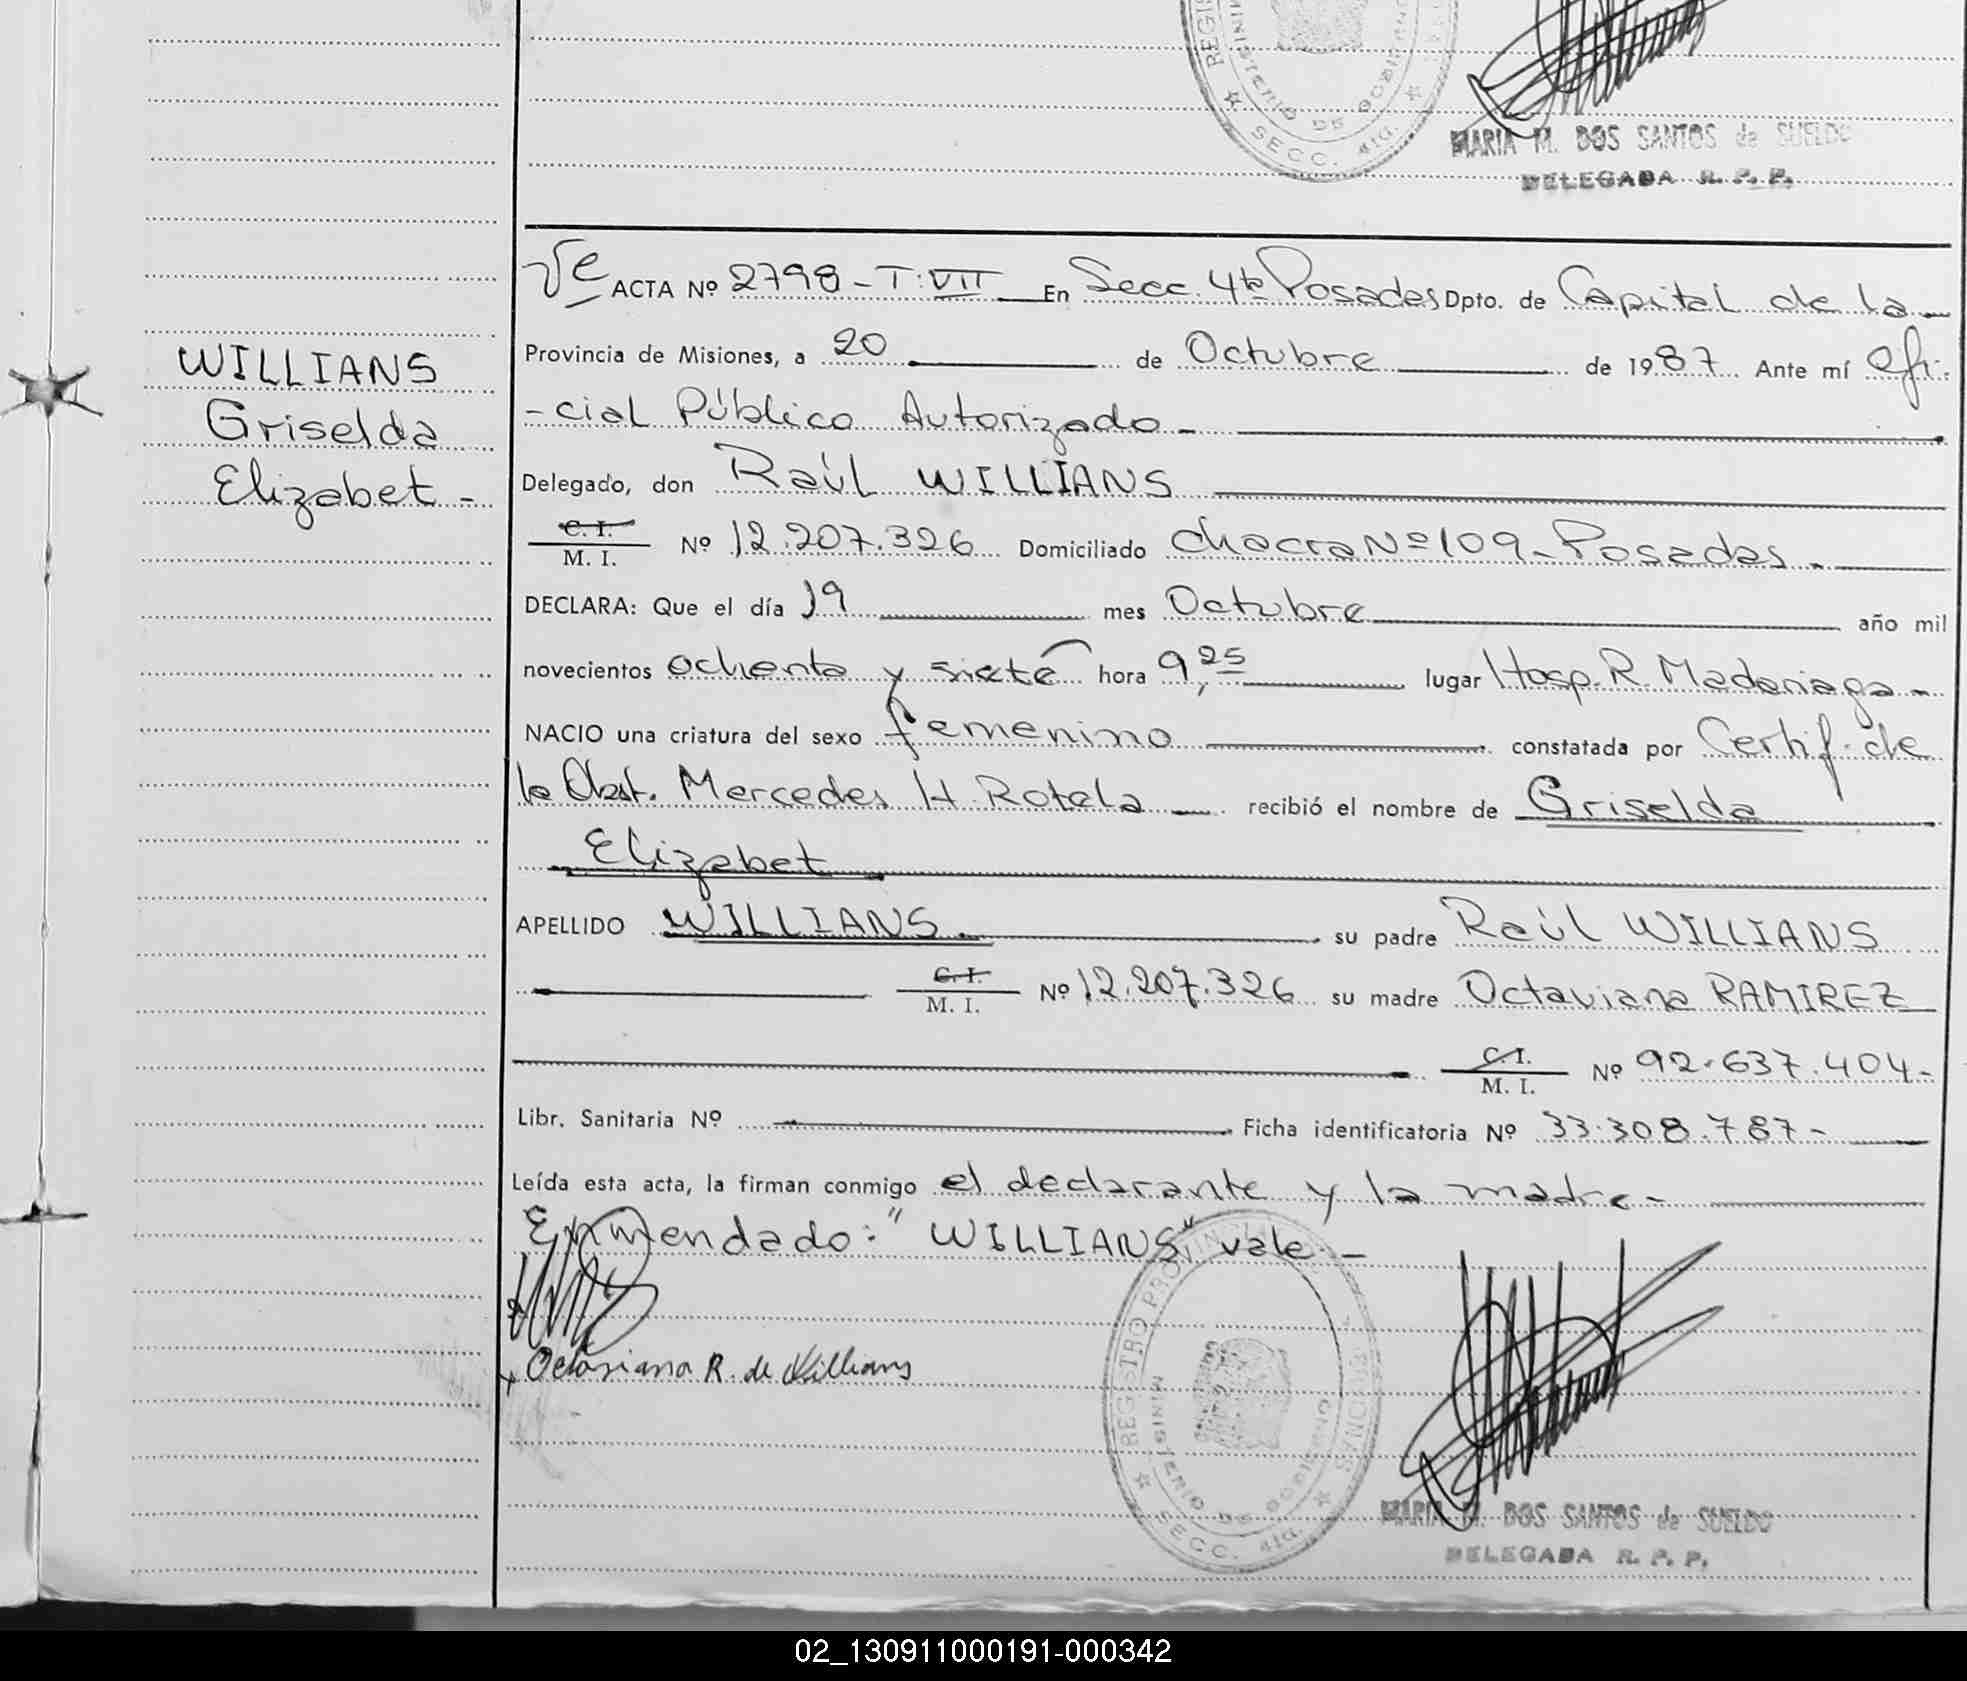 MARIA M. DOS SANTOS de SUELDO
DELEGADA R. P. P.
WILLIANS
Griselda
Elizabet -
ACTA Nº 2798 - T: VII En Secc. 4ta Posadas Dpto. de Capital de la
Provincia de Misiones, a 20 de Octubre de 1987 Ante mí Ofi-
-cial Público Autorizado -
Delegado, don Raúl WILLIANS
C. I.
M. I. Nº 12.207.326 Domiciliado Chacra Nº 109 - Posadas -
DECLARA: Que el día 19 mes Octubre año mil
novecientos ochenta y siete hora 9,25 lugar Hosp. R. Madariaga -
NACIO una criatura del sexo femenino constatada por Certif. de
la Obst. Mercedes H. Rotela recibió el nombre de Griselda
Elizabet
APELLIDO WILLIANS su padre Raúl WILLIANS
C. I.
M. I. Nº 12.207.326 su madre Octaviana RAMIREZ
C. I.
M. I. Nº 92.637.404 -
Libr. Sanitaria Nº Ficha identificatoria Nº 33.308.787 -
Leída esta acta, la firman conmigo el declarante y la madre -
Enmendado: "WILLIANS" vale -
Octaviana R. de Willians
REGISTRO PROVINCIAL PERSONAS
MINISTERIO DE GOBIERNO
SECC. 4ta
MARIA M. DOS SANTOS de SUELDO
DELEGADA R. P. P.
02_130911000191-000342